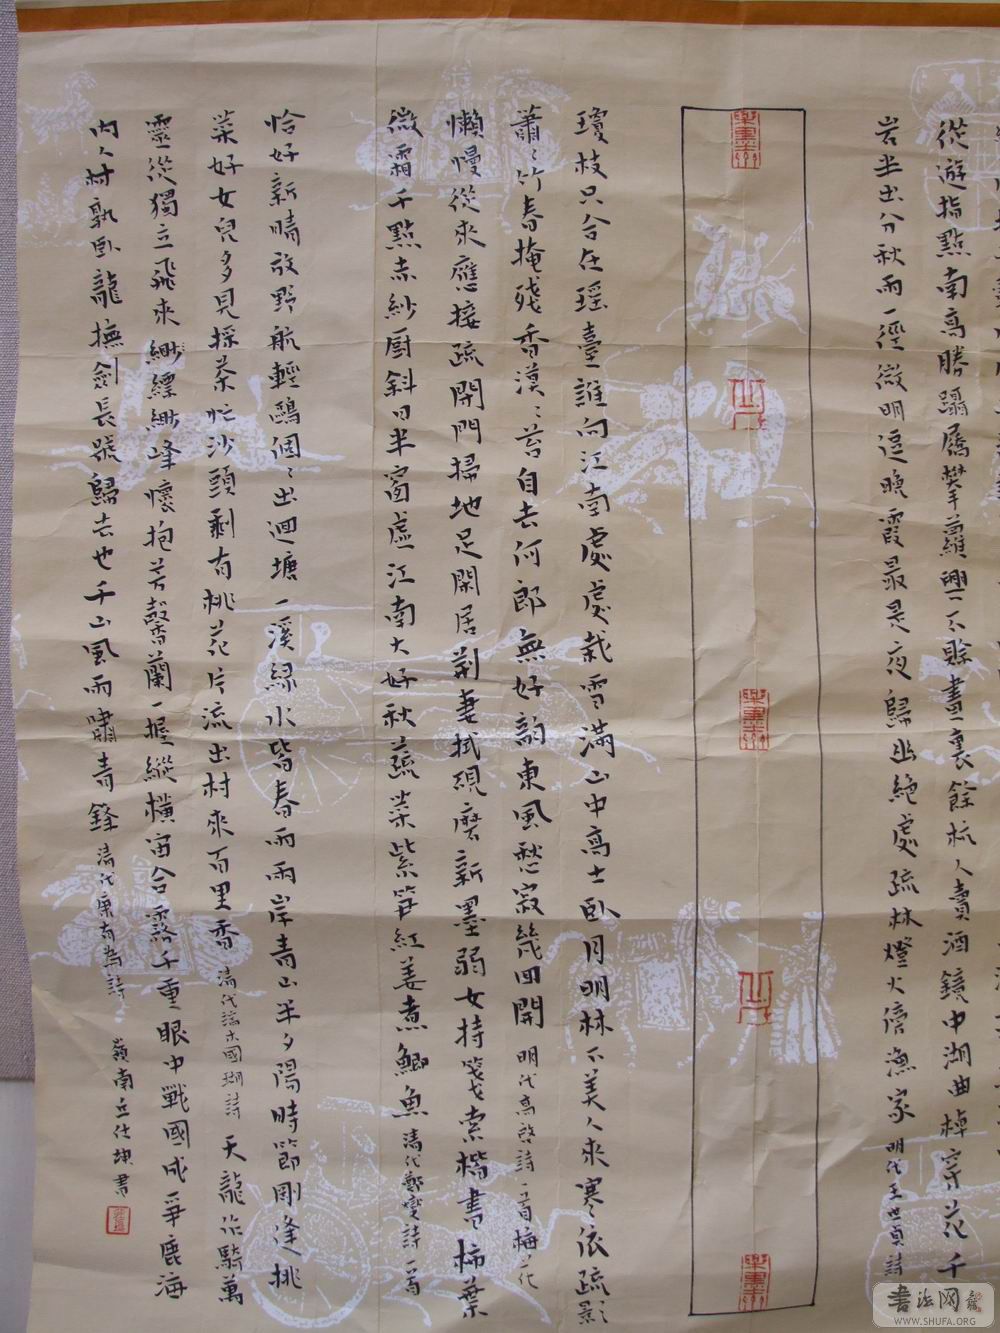 從遊指點南高勝躡屩攀蘿興不賒畫裏餘杭人賣酒鏡中湖曲棹穿花千
岩半出分秋雨一徑微明逗晚霞最是夜歸幽絕處疏林燈火傍漁家 明代王世貞詩
瓊枝只合在瑶臺誰向江南處處栽雪滿山中高士卧月明林下美人來寒依疏影
蕭々竹春掩殘香漠々苔自去何郎無好韵東風愁寂幾回開 明代高啓詩一首梅花
懶慢從來應接疏閉門掃地足閑居荆妻拭硯磨新墨弱女持箋索楷書柿葉
微霜千點赤紗厨斜日半窗虛江南大好秋蔬菜紫笋紅姜煮鯽魚 清代鄭燮詩一首
恰好新晴放野航輕鷗個々出迴塘一溪緑水皆春雨兩岸青山半夕陽時節剛逢挑
菜好女兒多見採茶忙沙頭剩有桃花片流出村來百里香 清代端木國瑚詩 天龍作騎萬
靈從獨立飛來緲縹緲峰懷抱芳馨蘭一握縱橫宙合霧千重眼中戰國成爭鹿海
內人材孰卧龍撫劍長號歸去也千山風雨嘯青鋒 清代康有為詩 嶺南丘仕坤書
书法网
WWW.SHUFA.ORG